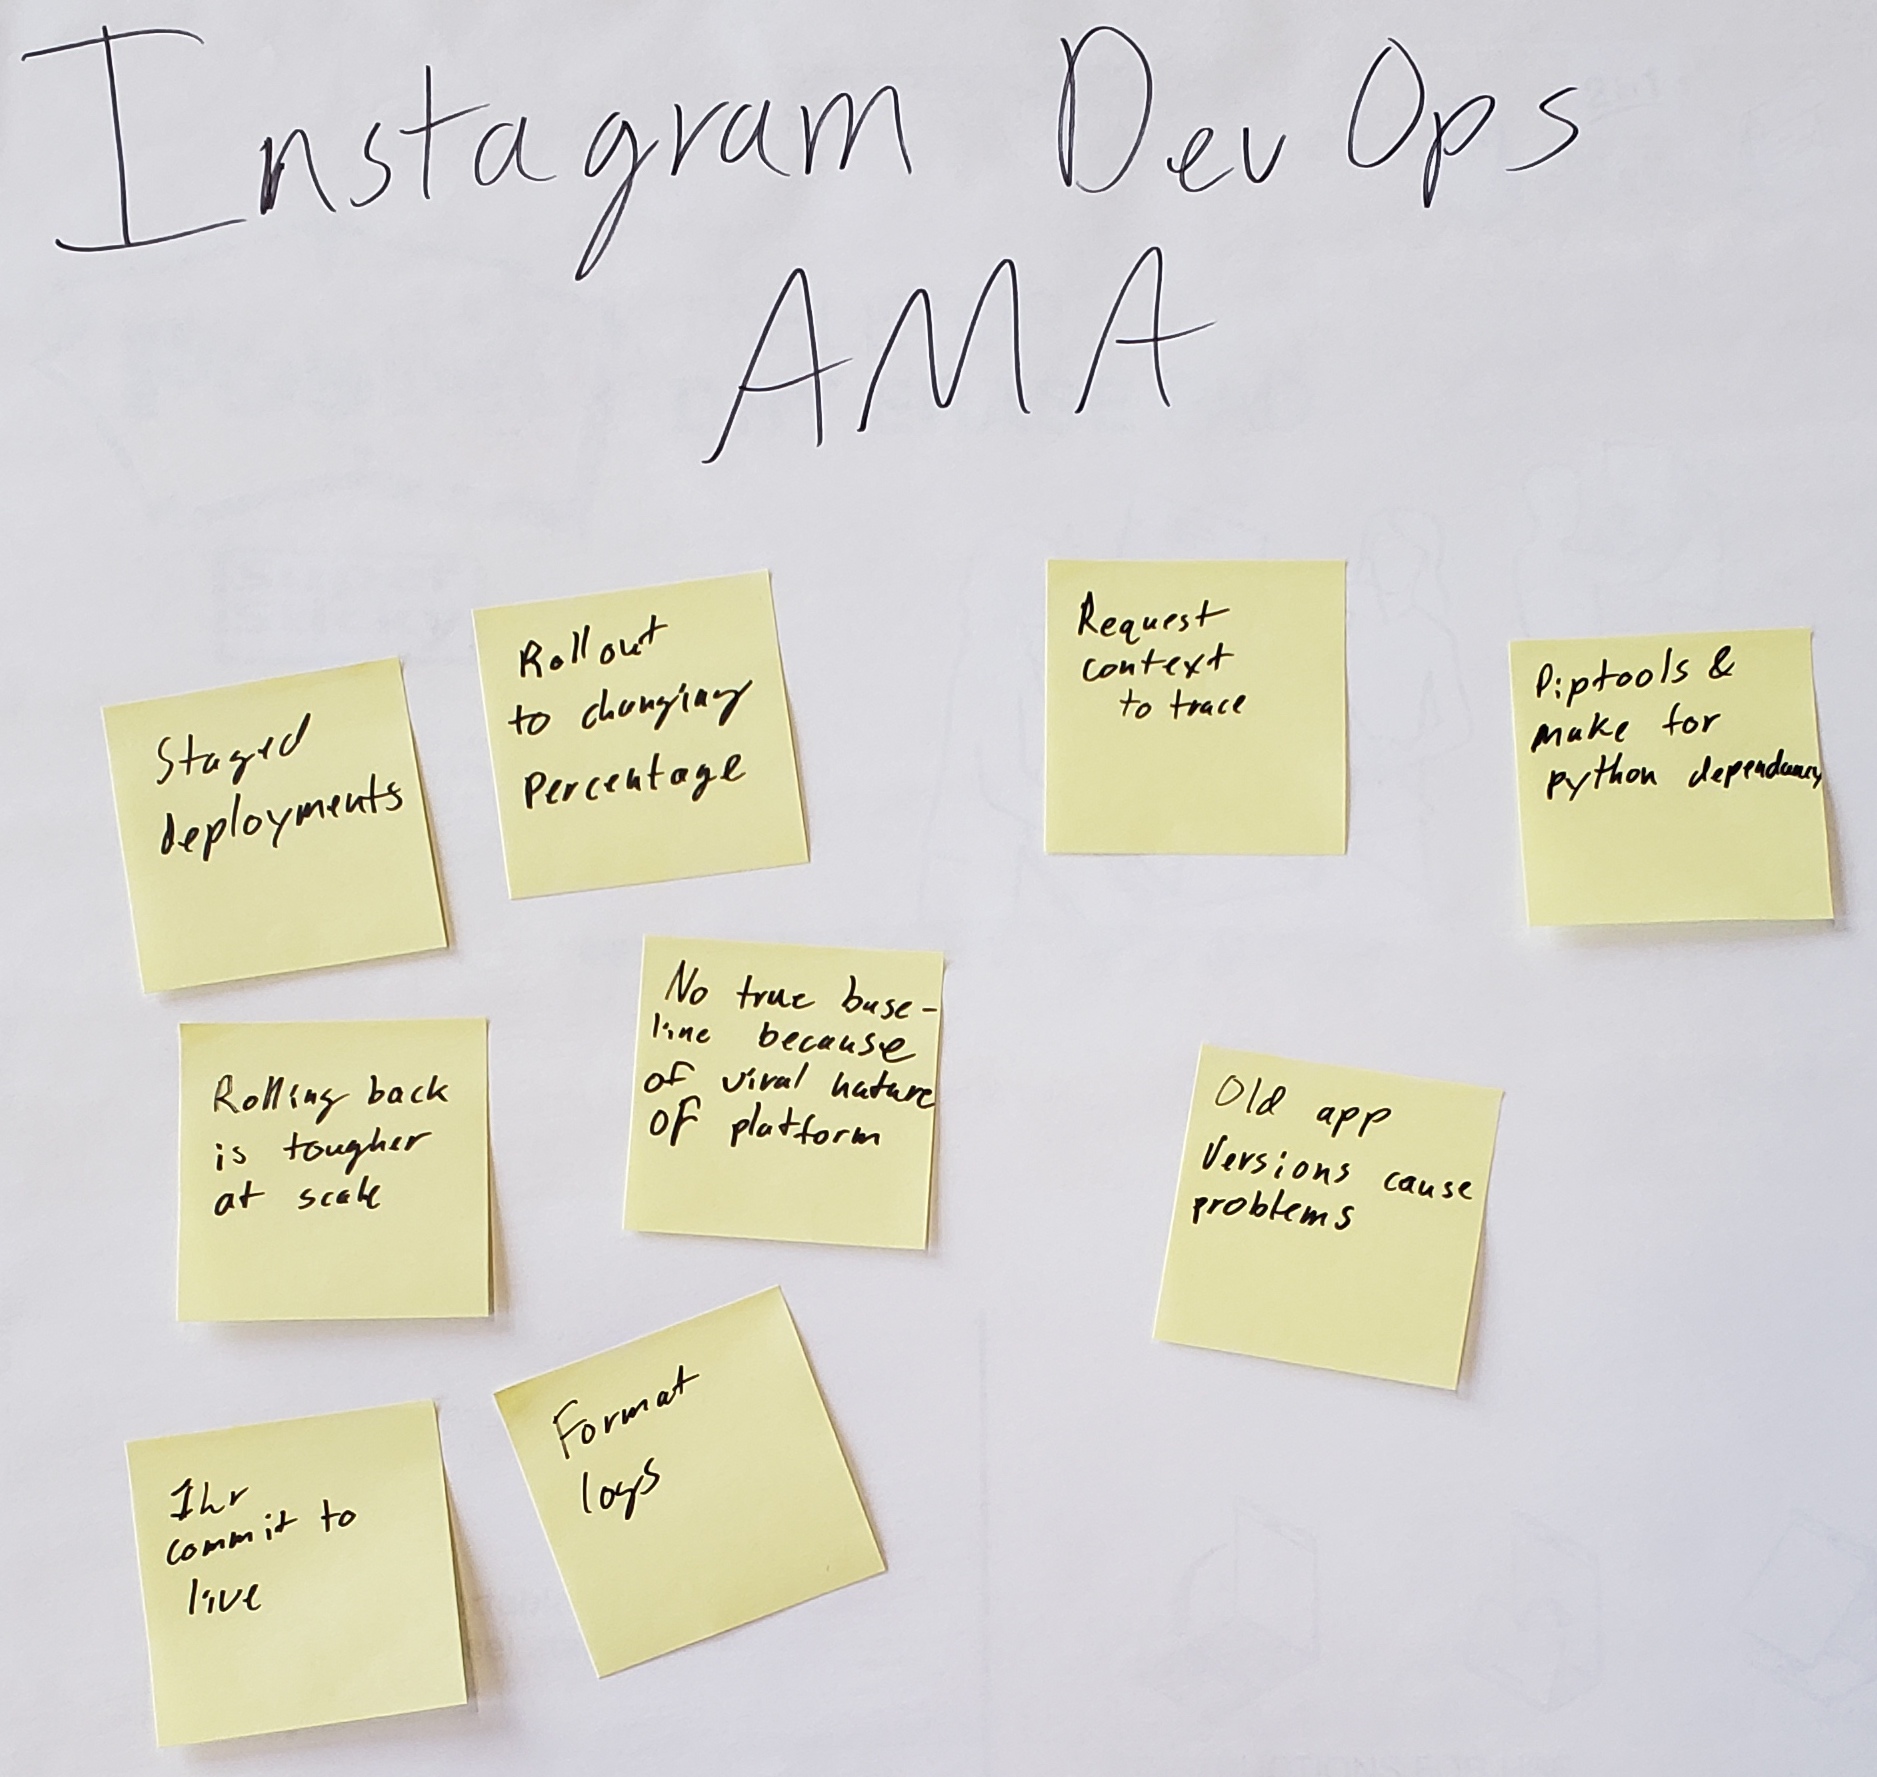 Instagram DevOps
AMA
Staged
deployments
Rollout
to changing
percentage
Request
context
to trace
Piptools &
make for
python dependancy
Rolling back
is tougher
at scale
No true base-
line because
of viral nature
of platform
Old app
versions cause
problems
1hr
commit to
live
Format
logs